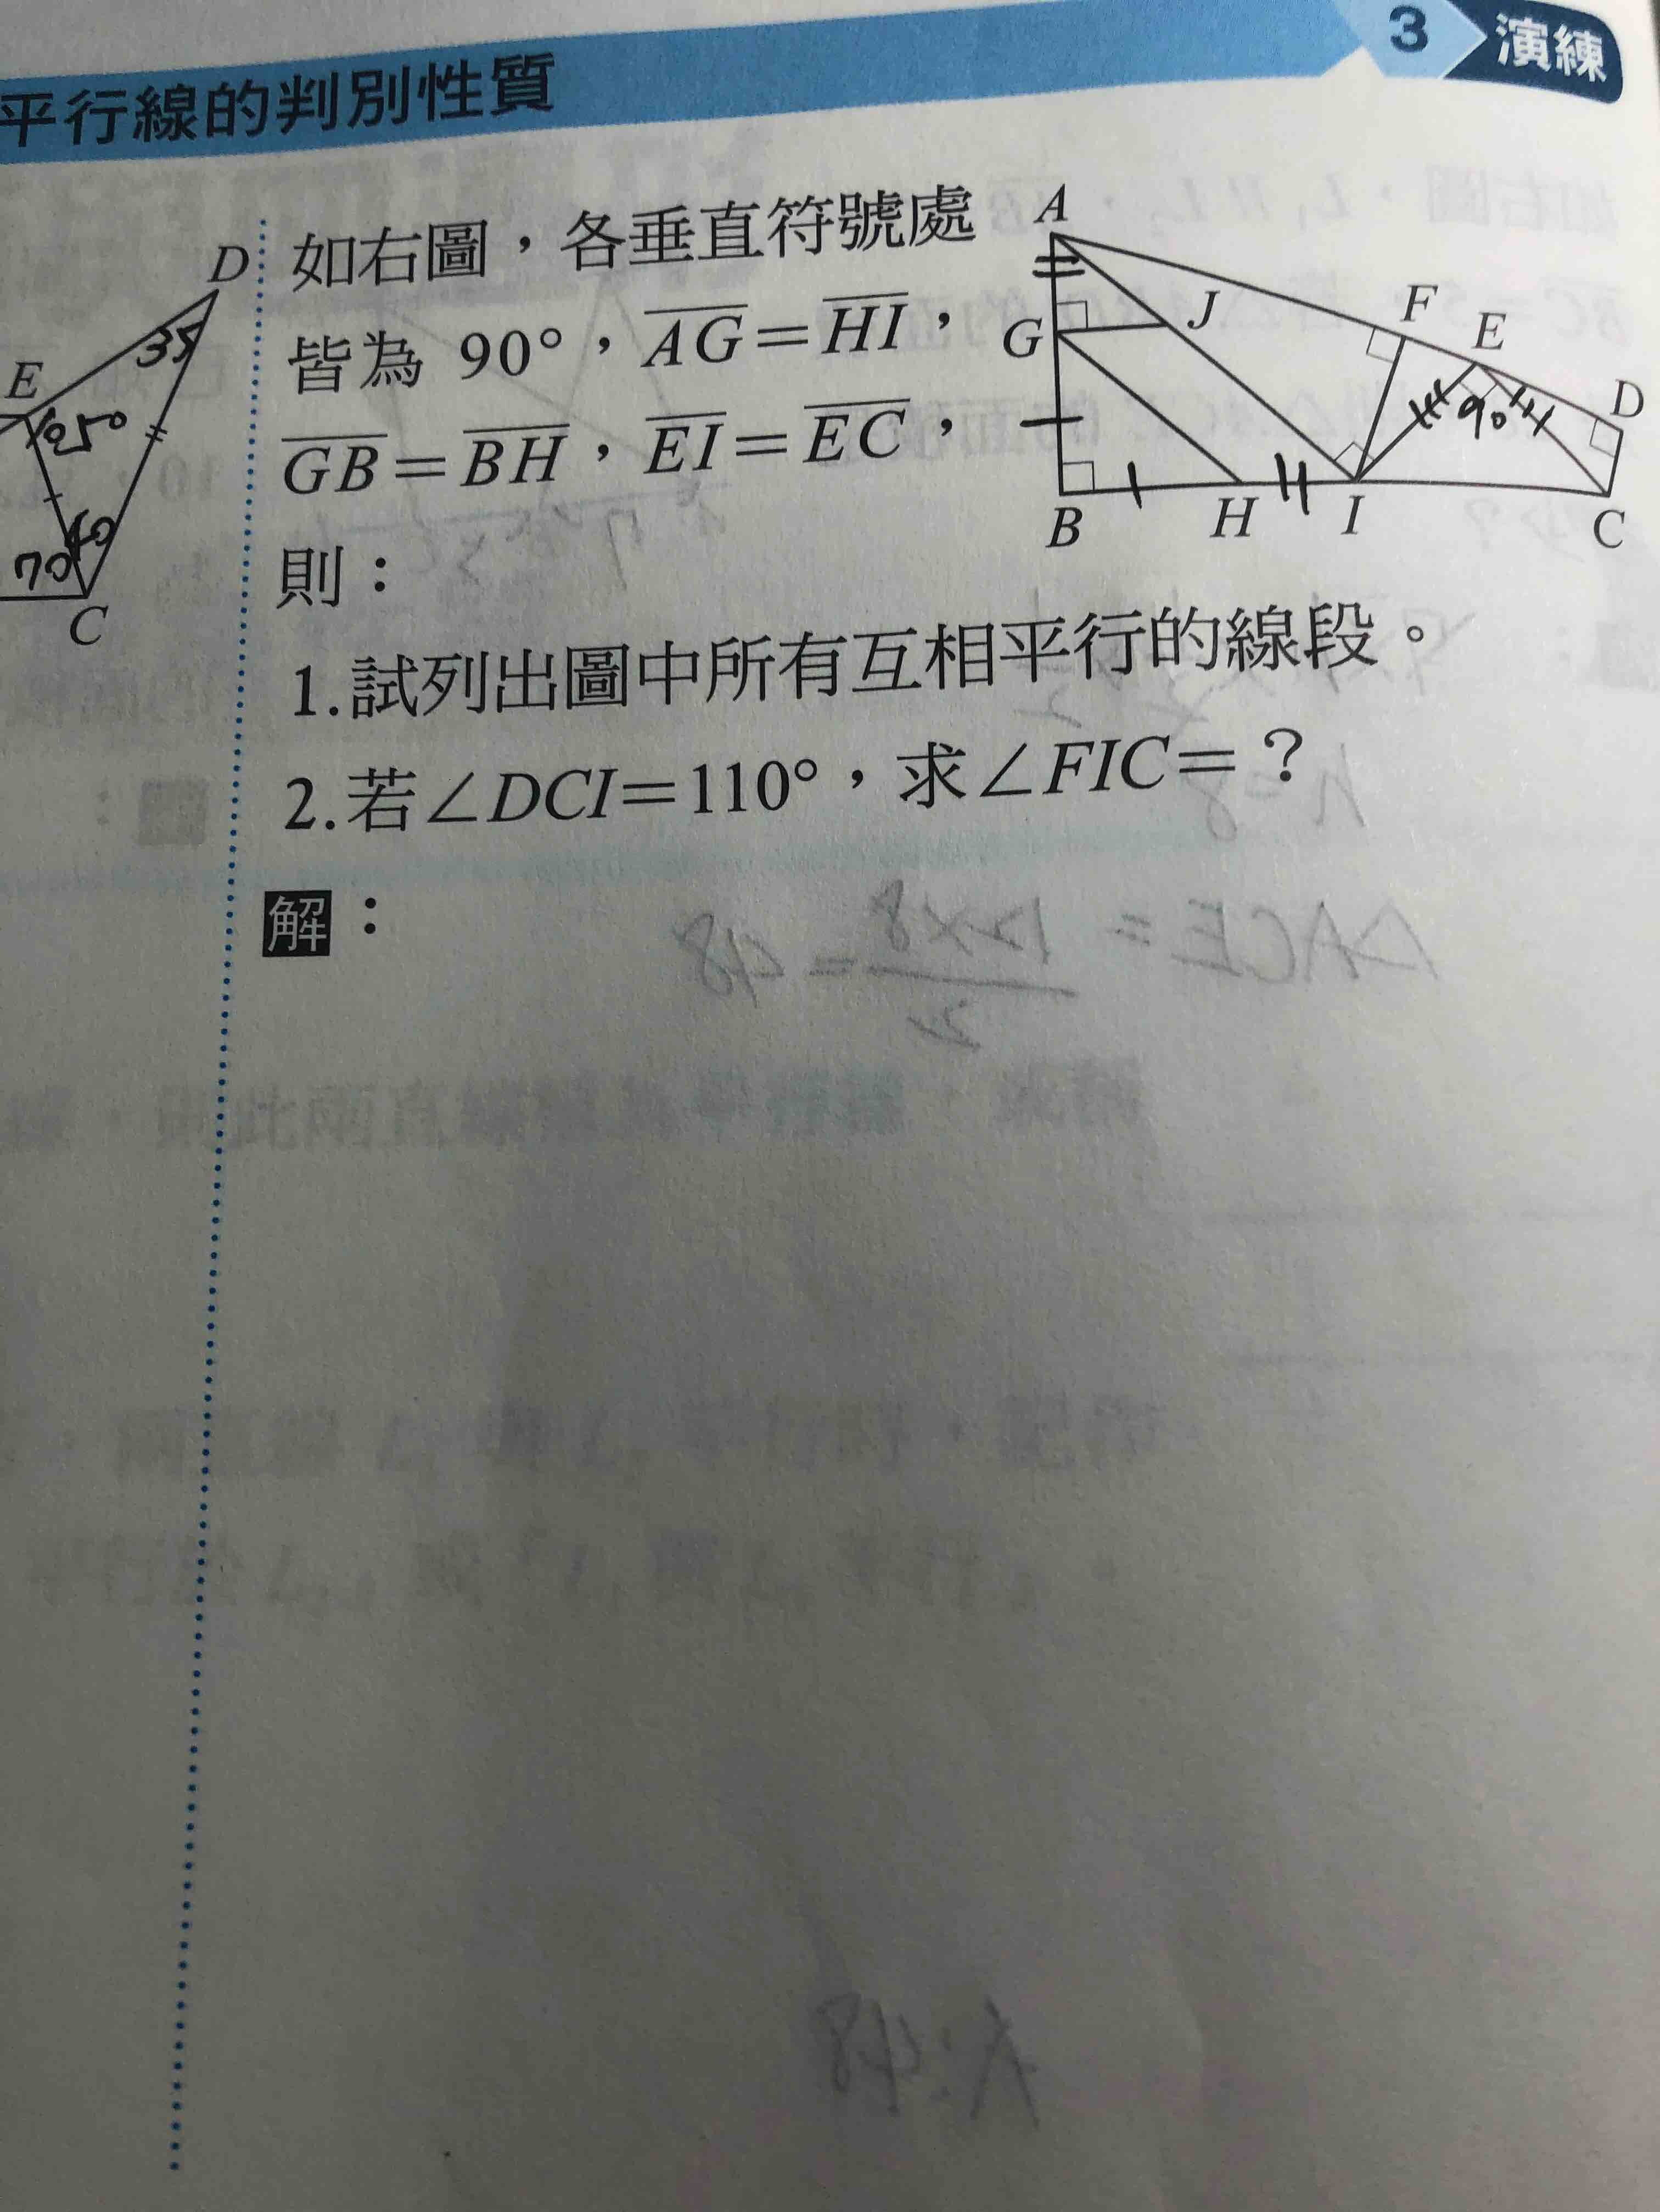 3 演練
平行線的判別性質
如右圖，各垂直符號處
皆為 90°，AG=HI，
GB=BH，EI=EC，
則：
1.試列出圖中所有互相平行的線段。
2.若∠DCI=110°，求∠FIC=？
解：
A
J
F
E
D
G
90
B
H
I
C
D
35
E
105°
70
40
C